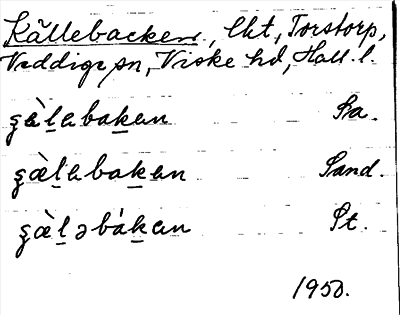 Källebacken, lht, Torstorp,
Veddige sn, Viske hd, Hall. l.
ʂæ̀l̠abak̠an Sa.
ʂæ̀l̠abak̠an Sand.
ʂæ̀l̠əbák̠an St.
1950.